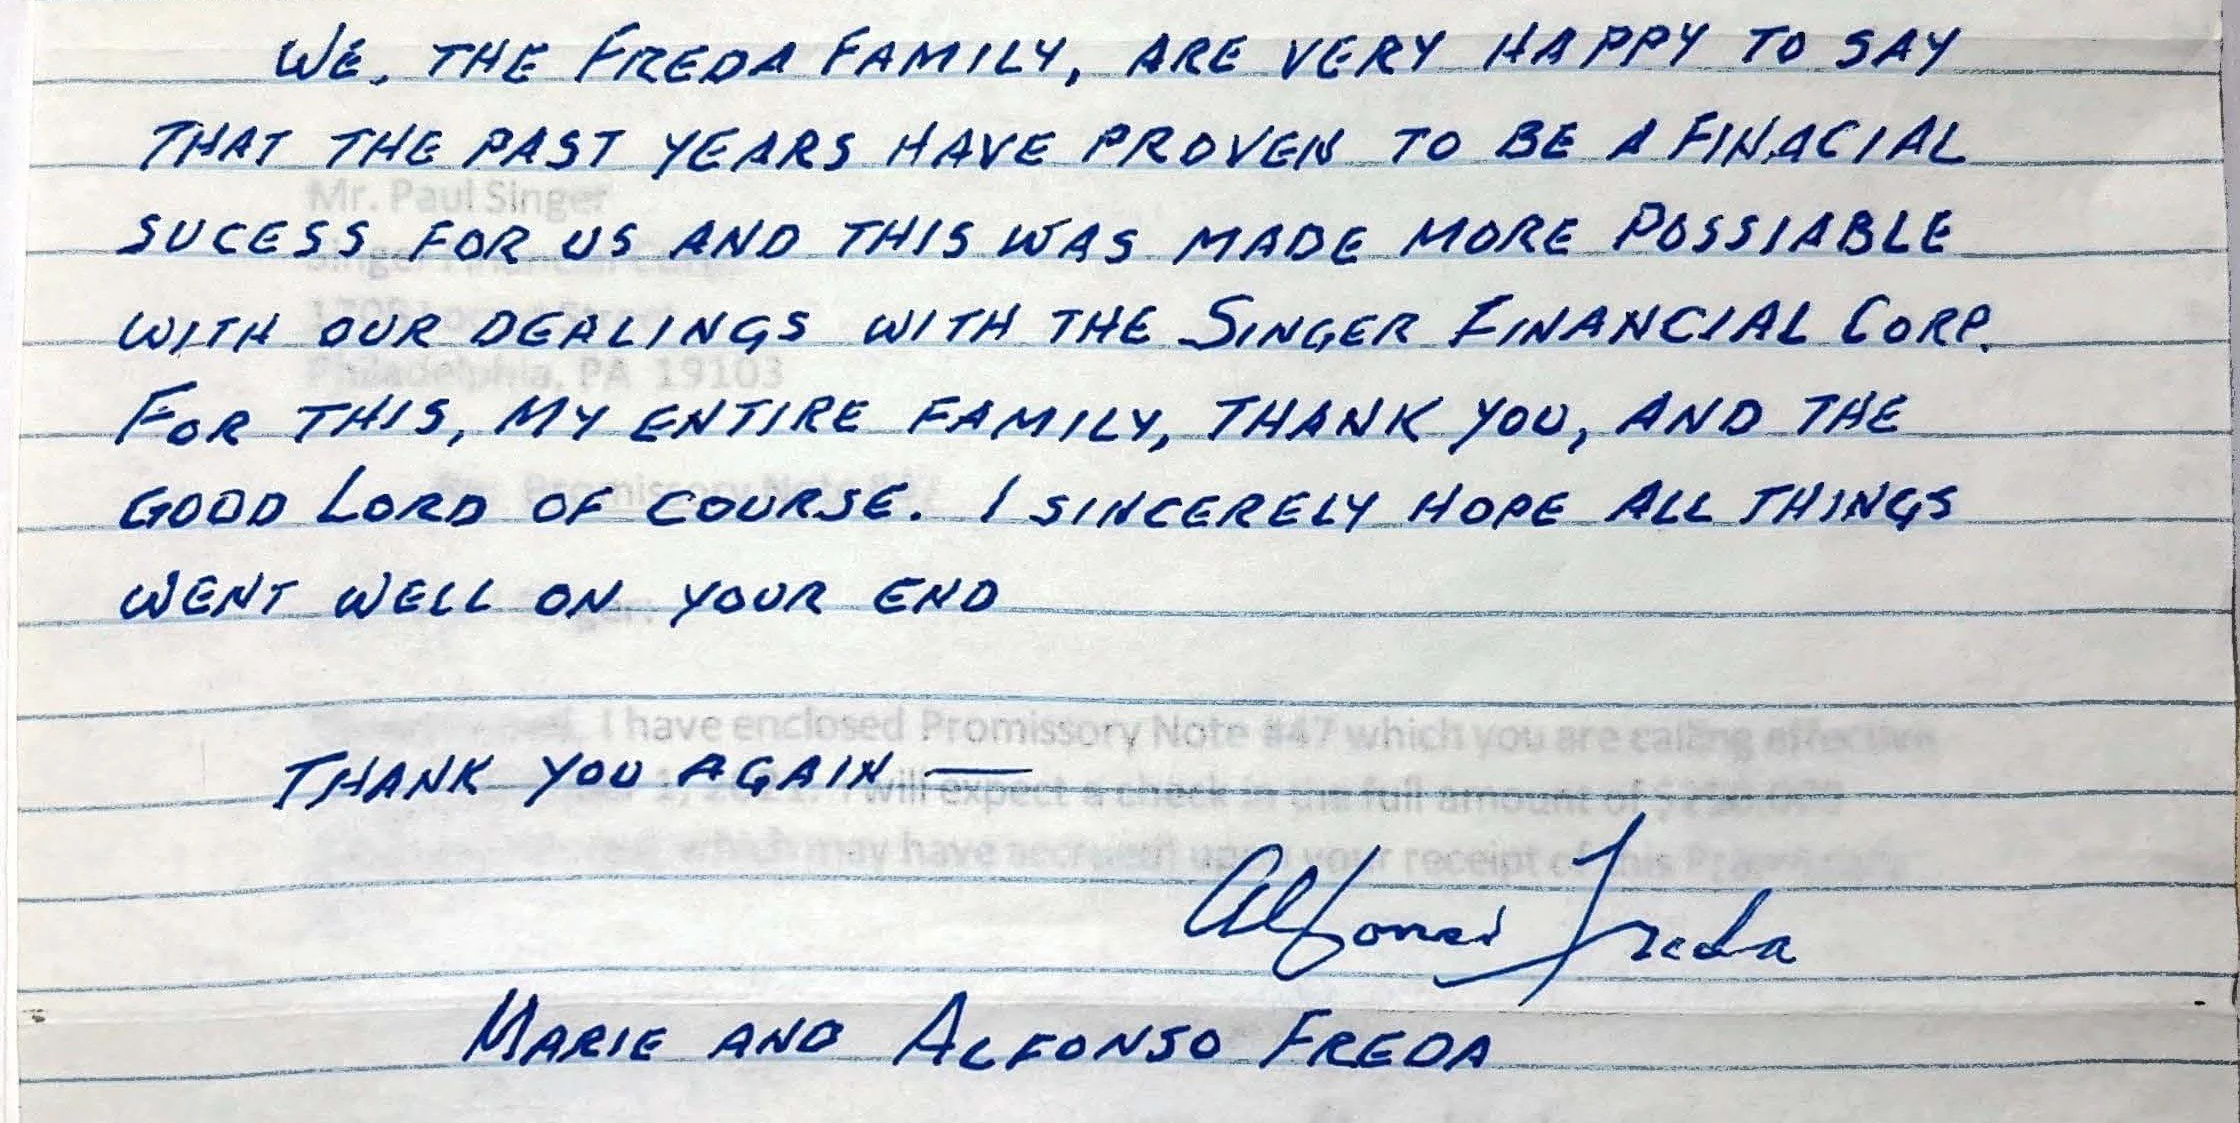 WE, THE FREDA FAMILY, ARE VERY HAPPY TO SAY
THAT THE PAST YEARS HAVE PROVEN TO BE A FINACIAL
Mr. Paul Singer
SUCESS FOR US AND THIS WAS MADE MORE POSSIABLE
WITH OUR DEALINGS WITH THE SINGER FINANCIAL CORP.
Philadelphia, PA 19103
FOR THIS, MY ENTIRE FAMILY, THANK YOU, AND THE
Promissory Note
GOOD LORD OF COURSE. I SINCERELY HOPE ALL THINGS
WENT WELL ON YOUR END
I have enclosed Promissory Note #47 which you are calling effective
THANK YOU AGAIN —
I will expect a check in the full amount of
which may have accrued upon your receipt of this
Alfonso Freda
MARIE AND ALFONSO FREDA